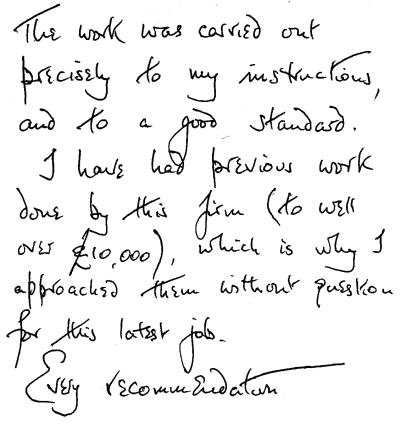 The work was carried out
precisely to my instructions,
and to a good standard.
I have had previous work
done by this firm (to well
over £10,000), which is why I
approached them without question
for this latest job.
Every recommendation